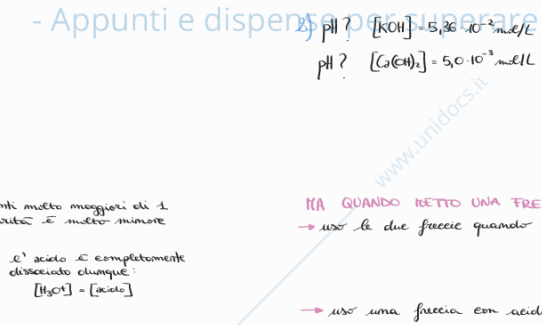 - Appunti e dispense per superare
2) pH ? [KOH] = 5,36 · 10⁻² mol/L
pH ? [Ca(OH)₂] = 5,0 · 10⁻³ mol/L
www.unidocs.it
molto maggiori di 1
è molto minore
l' acido è completamente
dissociato dunque:
[H₃O⁺] = [acido]
MA QUANDO METTO UNA
→ uso le due freccie quando
→ uso una freccia con